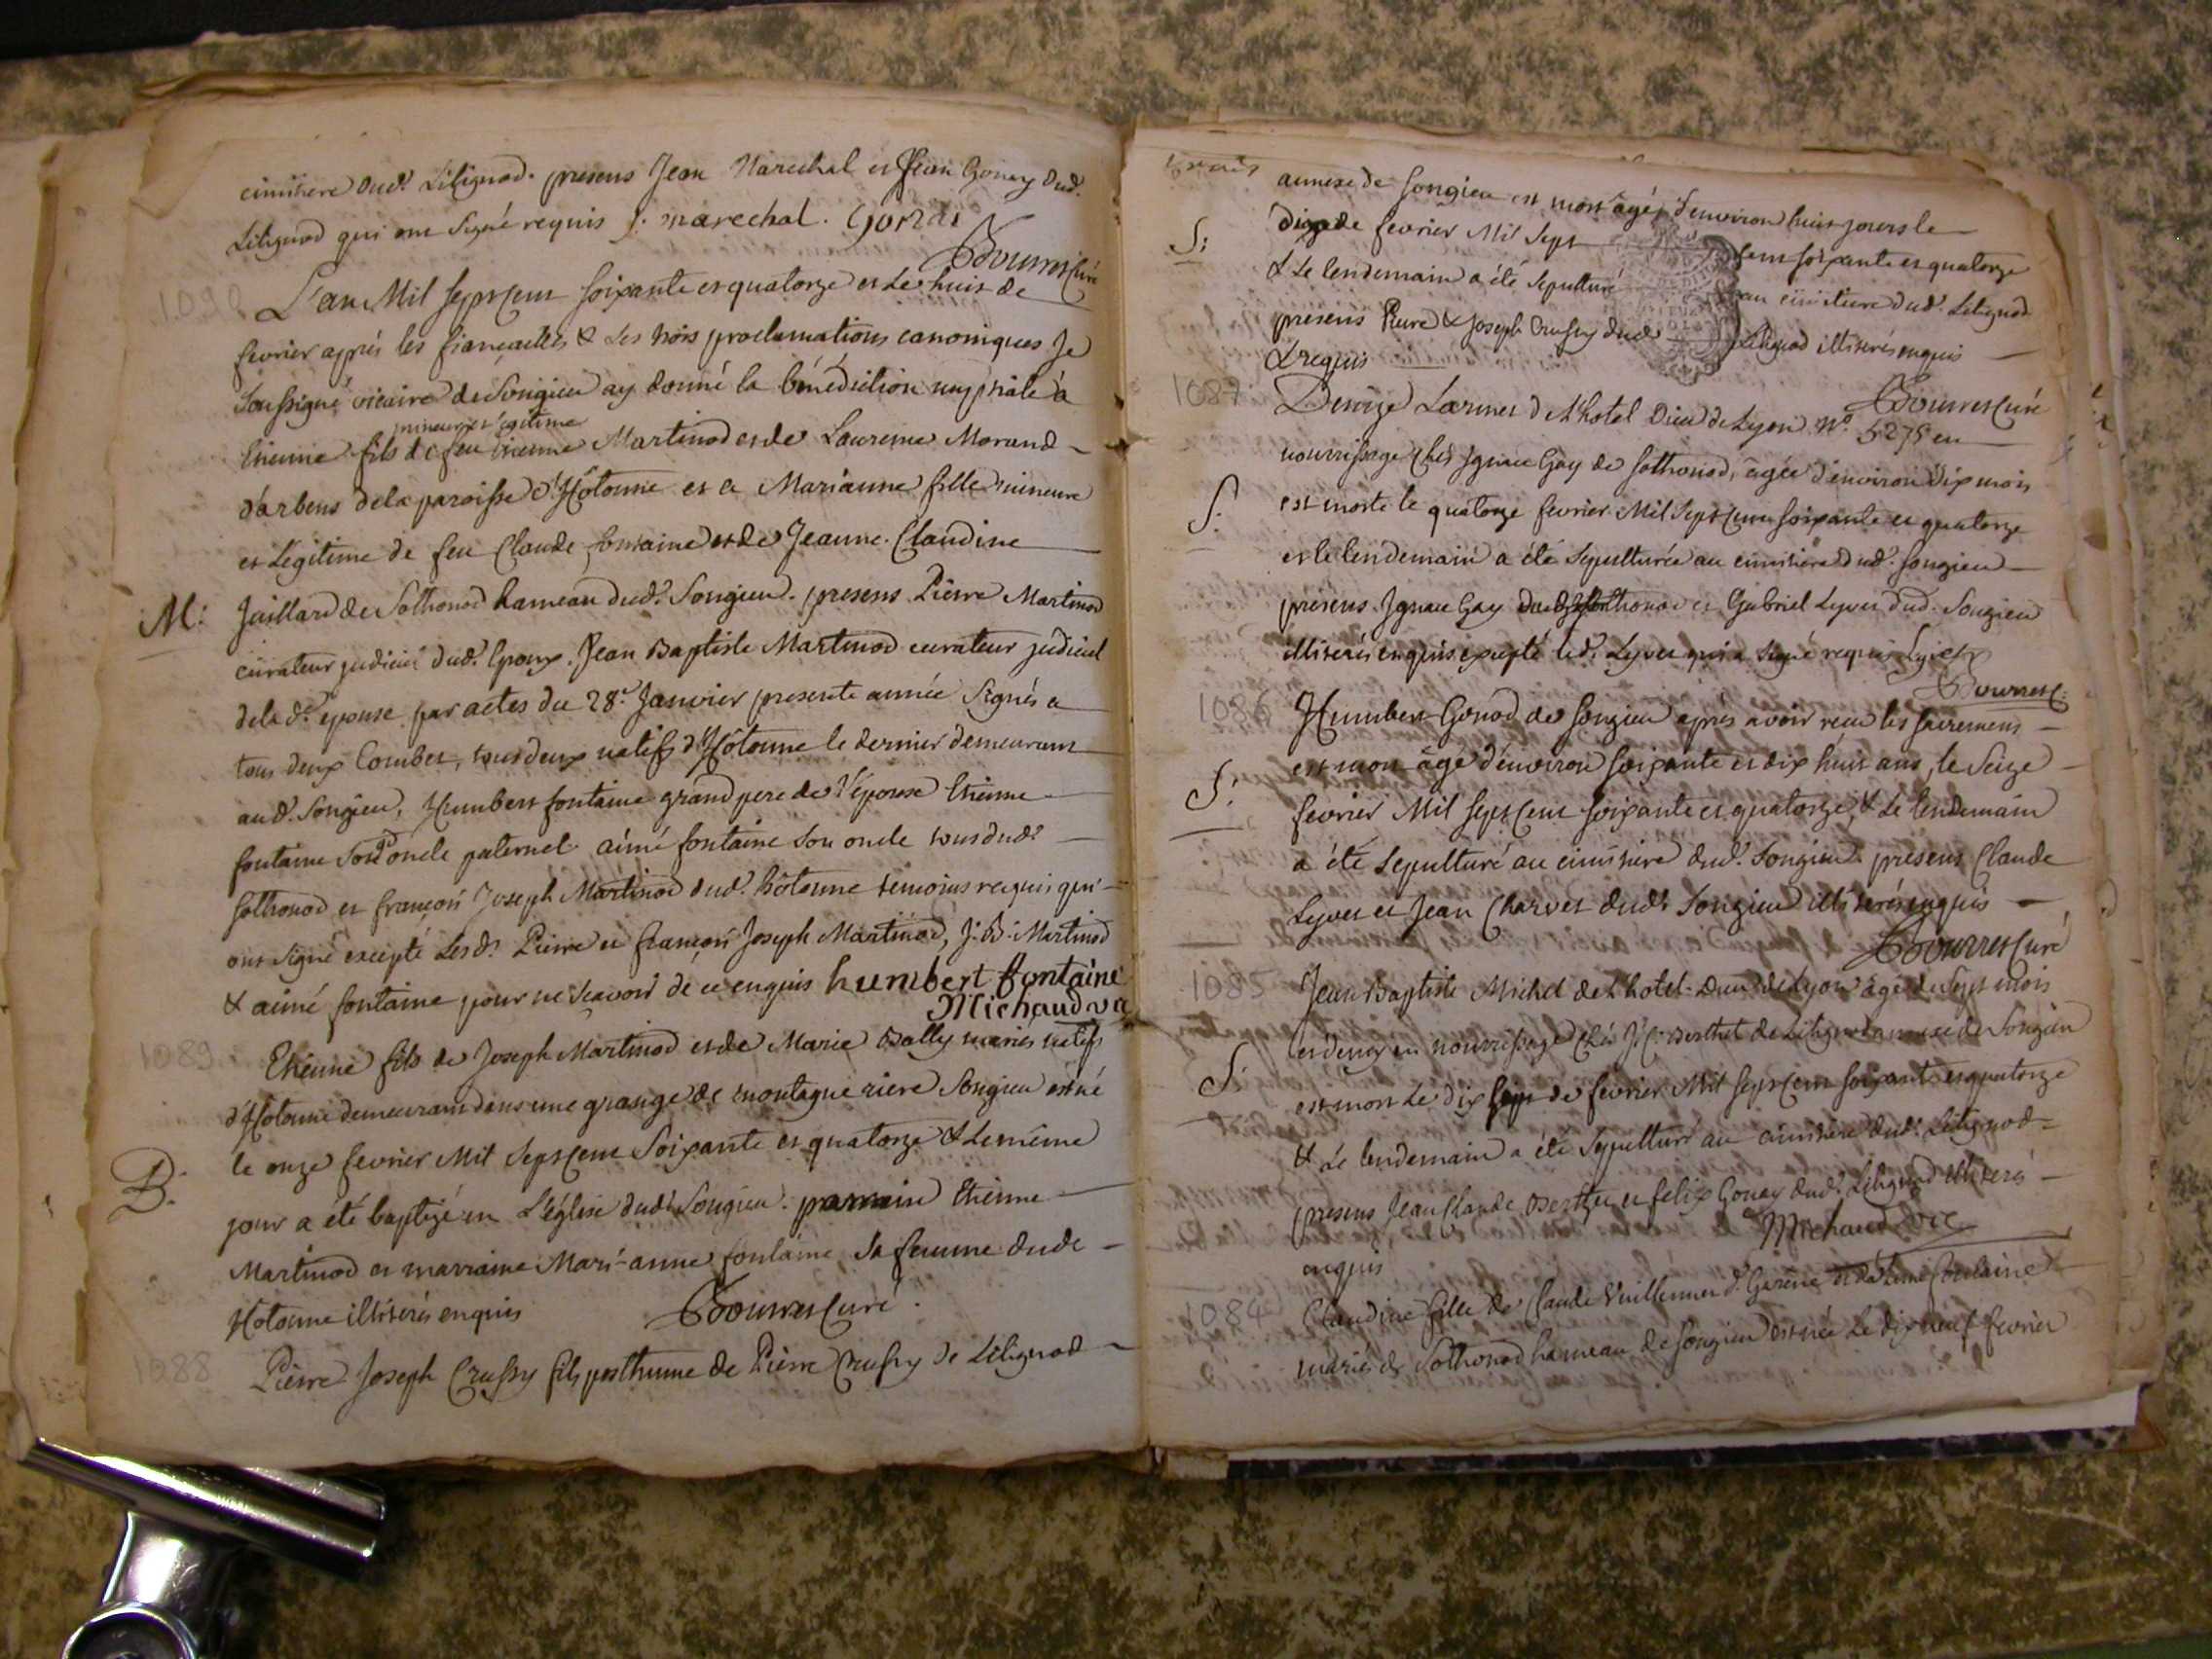 cimitiere dud.t Litignod. presens Jean Marechal et Jean Gonay dud.
Litignod qui ont signé requis j. marechal. Gonai
Bourret Curé
1090
L'an Mil sept cent soixante et quatorze et le huit de
fevrier aprés les fiancailles & les trois proclamations canoniques Je
soussigné vicaire de Songieu ay donné la bénédiction nuptiale à
mineur et légitime
Etienne fils de feu Etienne Martinod et de Laurense Morand
d'arbens de la paroisse d'Hôtonne et a Marianne fille mineure
et Légitime de feu Claude fontaine et de Jeanne Claudine
M: Juillard de Sothonod hameau dud.t Songieu. presens Pierre Martinod
curateur judiciel dud.t Epoux. Jean Baptiste Martinod curateur judiciel
de la d.e epouse par actes du 28.e Janvier presente année signés a
tous deux Combet, tous deux natifs d'Hôtonne le dernier demeurant
aud. Songieu, Humbert fontaine grand pere de l'épouse Etienne
fontaine son oncle paternel aimé fontaine son oncle tous dud.t
Sothonod et françois Joseph Martinod dud.t hôtonne temoins requis qui
ont signé excepté les d.s Pierre et françois Joseph Martinod, J. B. Martinod
& aimé fontaine pour ne scavoir de ce enquis humbert fontaine
Michaud vic
1089
Etienne fils de Joseph Martinod et de Marie Bally mariés natifs
d'Hotonne demeurant dans une grange de montagne riere Songieu est né
le onze fevrier Mil sept cent soixante et quatorze & le même
B. jour a été baptizé en L'église dud.t Songieu. parrain Etienne
Martinod et marraine Mari-anne fontaine sa femme dud.t
Hotonne illiterés enquis Bourret Curé.
1088
Pierre Joseph Crussy fils posthume de Pierre Crussy de Litignod
annexe de Songieu est mort agé d'environ huit jours le
S: dix de fevrier Mil sept cent soixante et quatorze
& le lendemain a été sepulturé au cimitiere dud.t Litignod
presens Pierre & Joseph Crussy dud.t Litignod illiterés enquis
& requis
Bourret Curé
1087
Denize Larmet de l'hotel Dieu de Lyon N.o 5275 en
nourrissage chés Ignace Gay de Sothonod, agée d'environ dix mois
S: est morte le quatorze fevrier Mil sept cent soixante et quatorze
et le lendemain a été sepulturée au cimitiere dud.t Songieu
presens Ignace Gay dud.t Sothonod et Gabriel Lyvet dud. Songieu
illiterés enquis excepté led.t Lyvet qui a signé requis Lyvet
Bourret C.
1086
Humbert Gonod de Songieu aprés avoir recu les sacremens
S: est mort âgé d'environ soixante et dix huit ans, le seize
fevrier Mil sept cent soixante et quatorze, & le lendemain
a été sepulturé au cimitiere dud.t Songieu presens Claude
Lyvet et Jean Charvet dud.t Songieu illiterés enquis
Bourret Curé
1085
Jean Baptiste Michel de l'hotel-Dieu de Lyon agé de sept mois
et demy en nourrissage chés J. C. Berthet de Litignod annexe de Songieu
S: est mort le dix sept de fevrier Mil sept cent soixante et quatorze
& le lendemain a été sepulturé au cimitiere dud.t Litignod
presens Jean Claude Berthet et felix Gonay dud.t Litignod illiterés
enquis
Michaud vic
1084
Claudine fille de Claude Vuillermet et fontaine
mariés de Sothonod hameau de Songieu est née le dix neuf fevrier